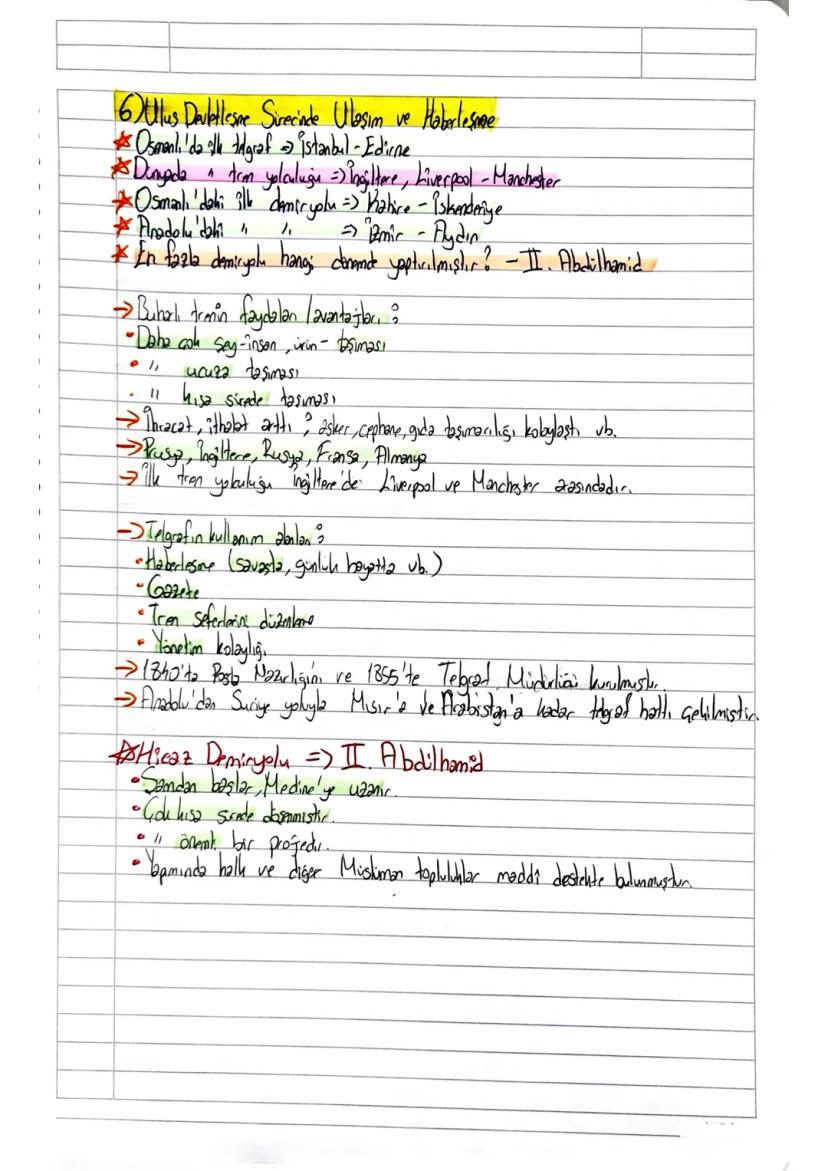 6) Ulus Devletleşme Sürecinde Ulaşım ve Haberleşme
Osmanlı'da ilk telgraf => İstanbul - Edirne
Dünyada " tren yolculuğu => İngiltere, Liverpool - Manchester
Osmanlı'daki ilk demiryolu => Kahire - İskenderiye
Anadolu'daki " " => İzmir - Aydın
En fazla demiryolu hangi dönemde yaptırılmıştır? - II. Abdülhamid
→ Buharlı trenin faydaları / avantajları:
• Daha çok şey-insan, ürün- taşıması
• " ucuza taşıması
• " kısa sürede taşıması
→ İhracat, ithalat arttı; asker, cephane, gıda taşımacılığı kolaylaştı vb.
→ Prusya, İngiltere, Rusya, Fransa, Almanya
→ İlk tren yolculuğu İngiltere'de Liverpool ve Manchester arasındadır.
→ Telgrafın kullanım alanları:
• Haberleşme (savaşta, günlük hayatta vb.)
• Gazete
• Tren seferlerini düzenleme
• Yönetim kolaylığı
→ 1840'ta Posta Nazırlığını ve 1855'te Telgraf Müdürlüğü kurulmuştur.
→ Anadolu'dan Suriye yoluyla Mısır'a ve Arabistan'a kadar telgraf hattı çekilmiştir.
Hicaz Demiryolu => II. Abdülhamid
• Şamdan başlar, Medine'ye uzanır.
• Çok kısa sürede döşenmiştir.
• " önemli bir projedir.
• Yapımında halk ve diğer Müslüman topluluklar maddî destekte bulunmuştur.